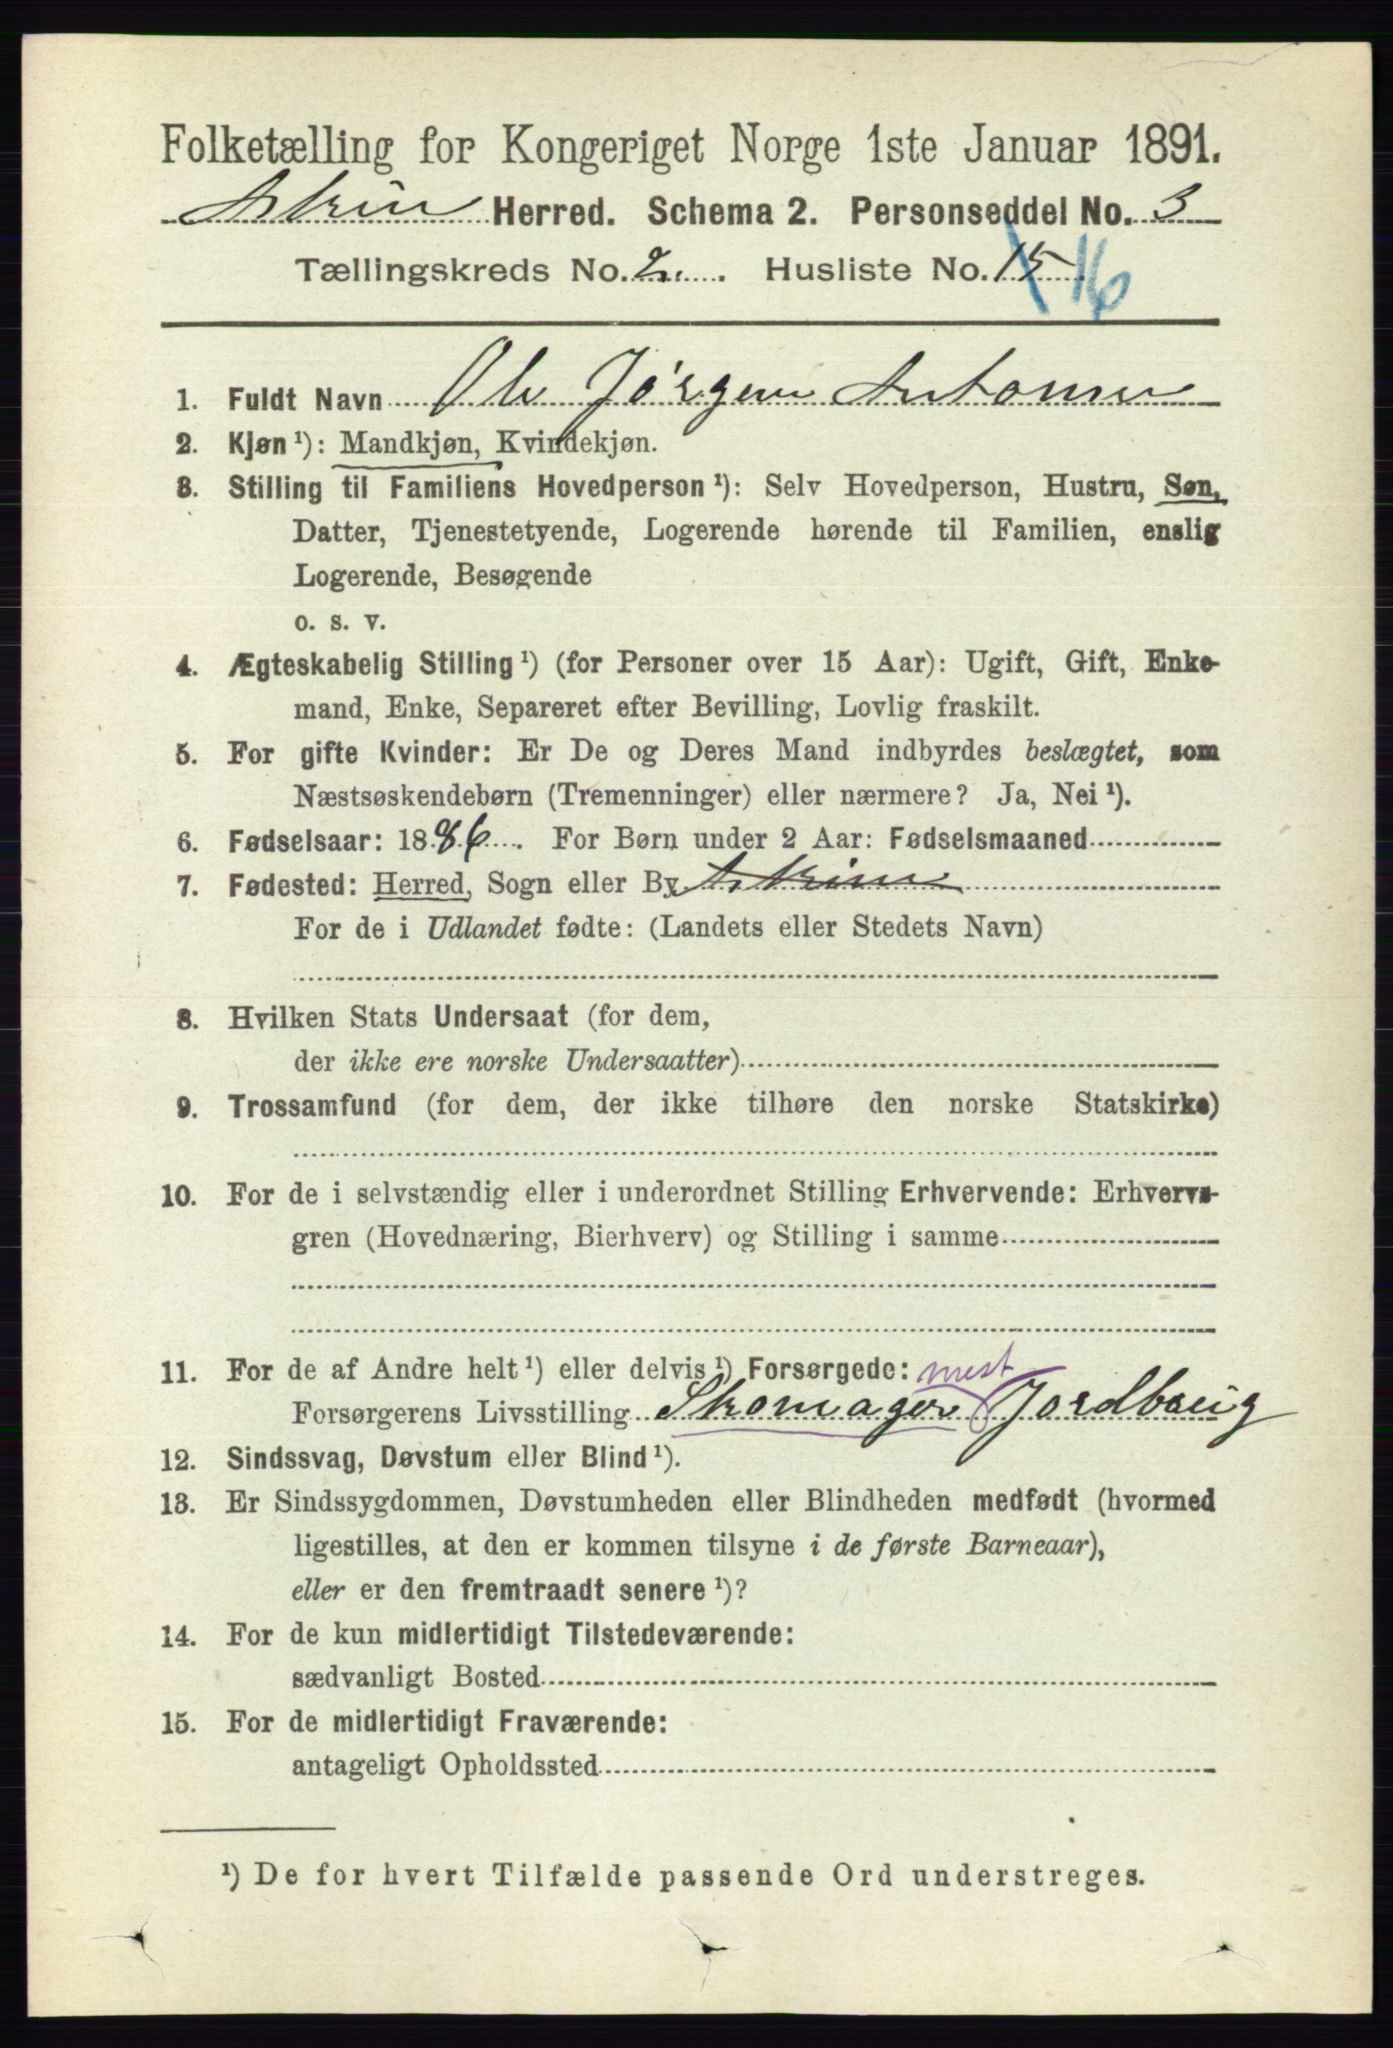 Folketælling for Kongeriget Norge 1ste Januar 1891.
Askim Herred. Schema 2. Personseddel No. 3
Tællingskreds No. 2. Husliste No. 15 16
1. Fuldt Navn Ole Jørgen Antonsen
2. Kjøn ¹): Mandkjøn, Kvindekjøn.
3. Stilling til Familiens Hovedperson ¹): Selv Hovedperson, Hustru, Søn,
Datter, Tjenestetyende, Logerende hørende til Familien, enslig
Logerende, Besøgende
o. s. v.
4. Ægteskabelig Stilling ¹) (for Personer over 15 Aar): Ugift, Gift, Enke-
mand, Enke, Separeret efter Bevilling, Lovlig fraskilt.
5. For gifte Kvinder: Er De og Deres Mand indbyrdes beslægtet, som
Næstsøskendebørn (Tremenninger) eller nærmere? Ja, Nei ¹).
6. Fødselsaar: 1886. For Børn under 2 Aar: Fødselsmaaned
7. Fødested: Herred, Sogn eller By Askim
For de i Udlandet fødte: (Landets eller Stedets Navn)
8. Hvilken Stats Undersaat (for dem,
der ikke ere norske Undersaatter)
9. Trossamfund (for dem, der ikke tilhøre den norske Statskirke)
10. For de i selvstændig eller i underordnet Stilling Erhvervende: Erhvervs-
gren (Hovednæring, Bierhverv) og Stilling i samme
11. For de af Andre helt ¹) eller delvis ¹) Forsørgede: mest
Forsørgerens Livsstilling Skomager Jordbrug
12. Sindssvag, Døvstum eller Blind ¹).
13. Er Sindssygdommen, Døvstumheden eller Blindheden medfødt (hvormed
ligestilles, at den er kommen tilsyne i de første Barneaar),
eller er den fremtraadt senere ¹)?
14. For de kun midlertidigt Tilstedeværende:
sædvanligt Bosted
15. For de midlertidigt Fraværende:
antageligt Opholdssted
¹) De for hvert Tilfælde passende Ord understreges.